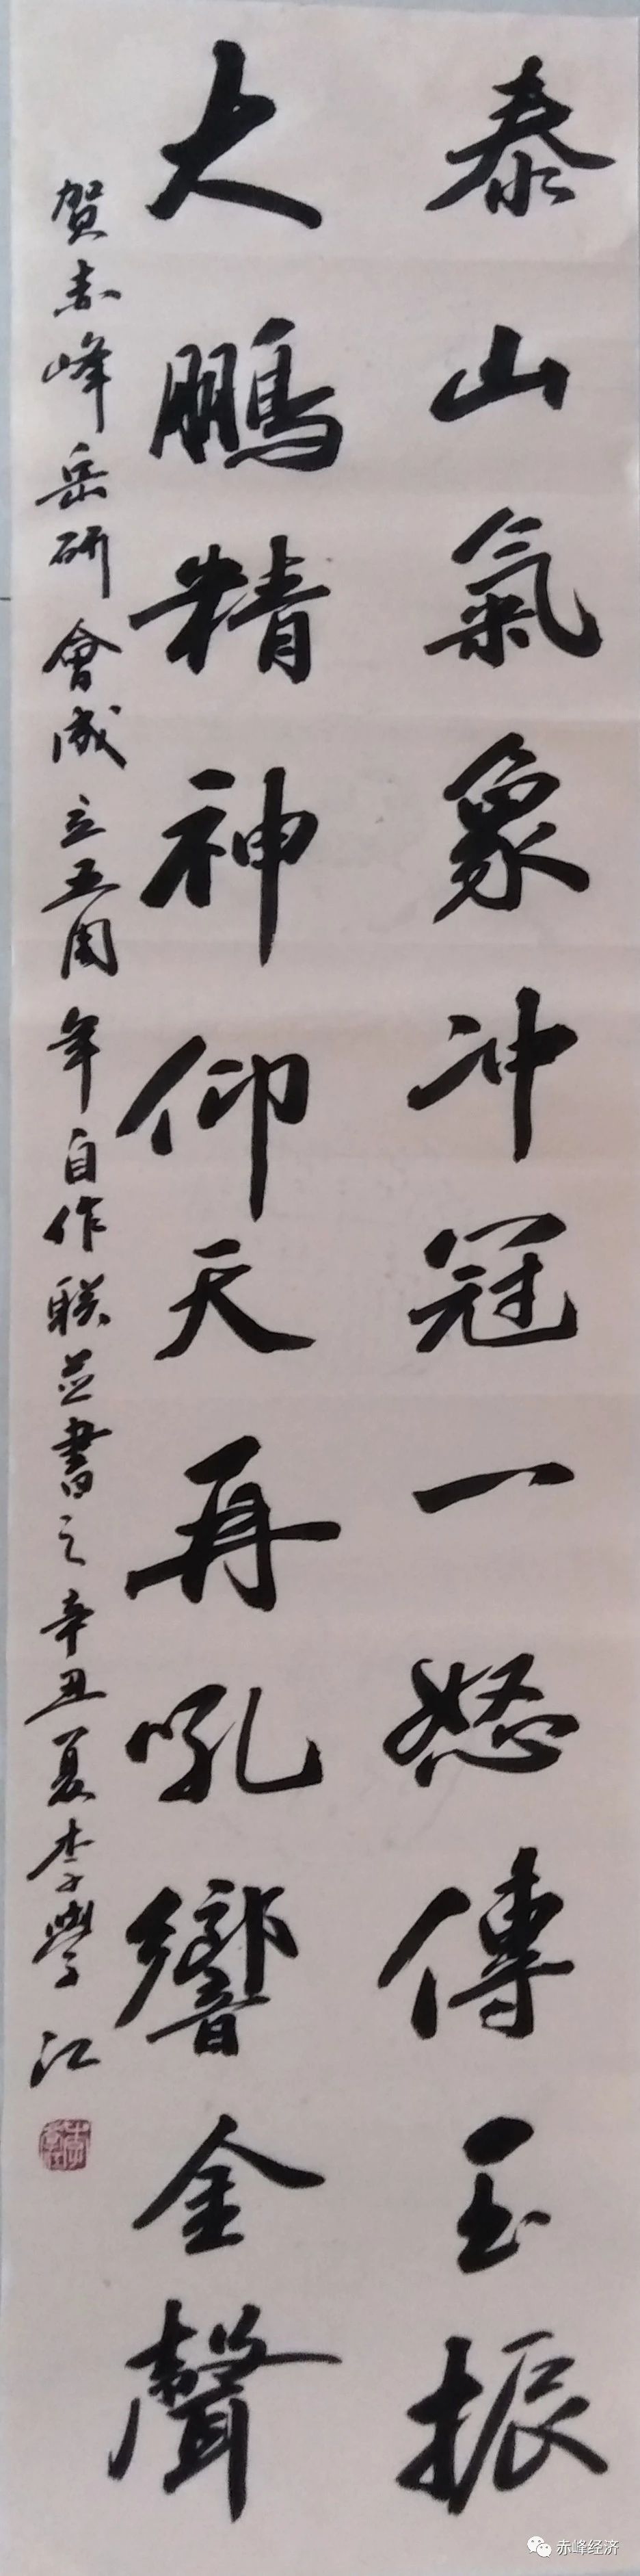 泰山氣象冲冠一怒傳玉振
大鵬精神仰天再吼響金聲
贺赤峰岳研會成立五周年自作联並書之辛丑夏李學江
赤峰经济